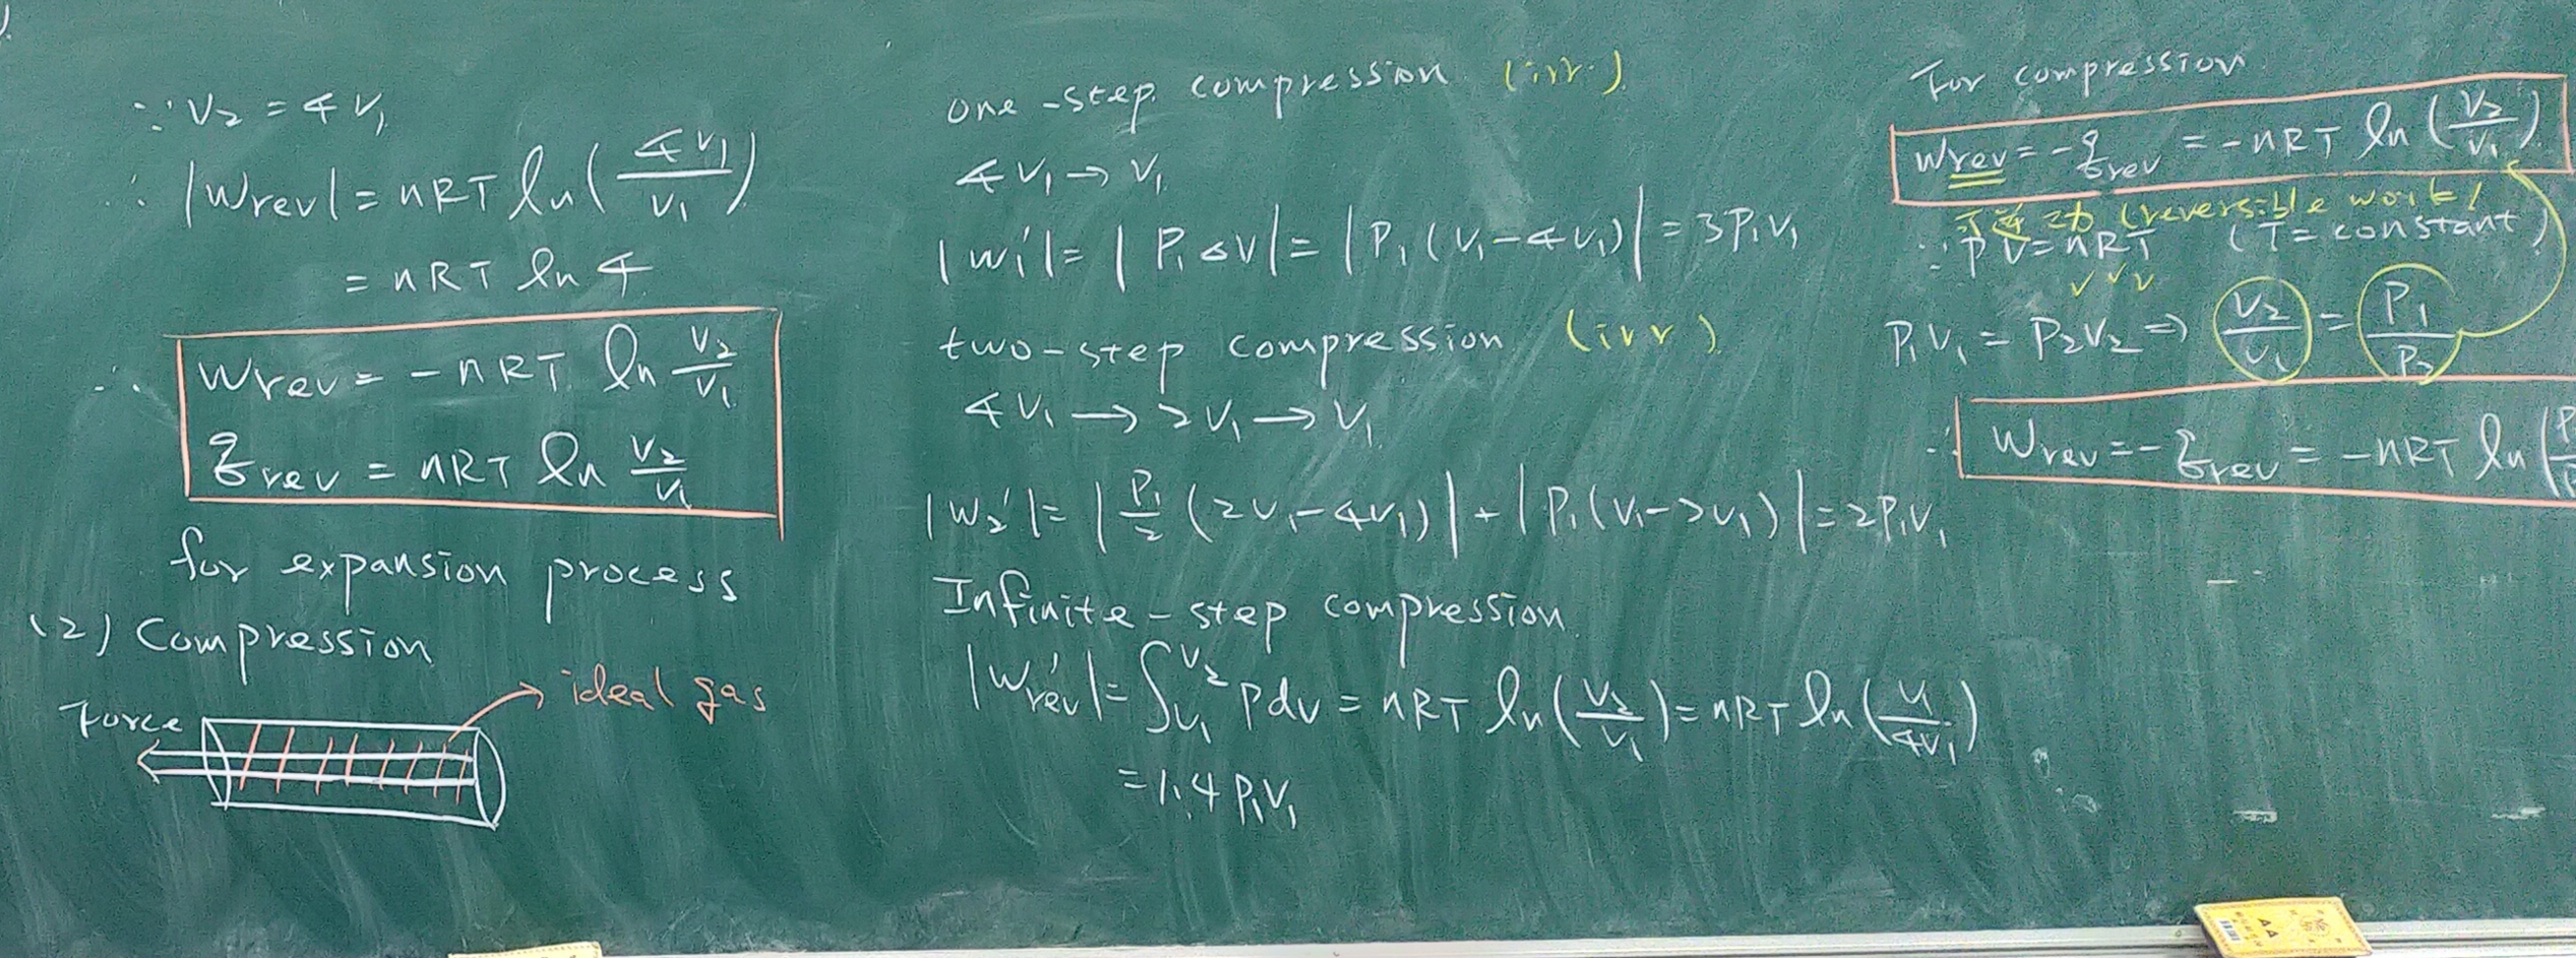 ∵ V₂ = 4V₁
∴ |Wrev| = nRT ln(4V₁/V₁)
= nRT ln 4
∴ Wrev = -nRT ln V₂/V₁
qrev = nRT ln V₂/V₁
for expansion process
(2) Compression
Force
ideal gas
one-step compression (irr.)
4V₁ → V₁
|W₁'| = |P₁ΔV| = |P₁(V₁-4V₁)| = 3P₁V₁
two-step compression (irr)
4V₁ → 2V₁ → V₁
|W₂'| = |P₁/2 (2V₁-4V₁)| + |P₁(V₁-2V₁)| = 2P₁V₁
Infinite-step compression
|W'rev| = ∫V₁V₂ PdV = nRT ln(V₂/V₁) = nRT ln(V₁/4V₁)
= 1.4P₁V₁
For compression
Wrev = -qrev = -nRT ln(V₂/V₁)
可逆功 (reversible work)
∵ PV = nRT (T = constant)
P₁V₁ = P₂V₂ ⇒ V₂/V₁ = P₁/P₂
∴ Wrev = -qrev = -nRT ln(P
AA